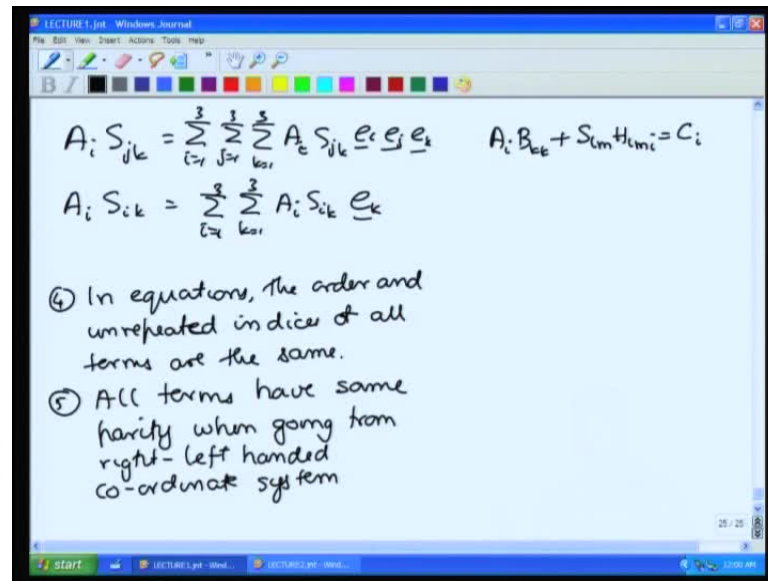 LECTURE1.jnt - Windows Journal
File Edit View Insert Actions Tools Help
B I
A_i S_jk = Σ_{i=1}^{3} Σ_{j=1}^{3} Σ_{k=1}^{3} A_i S_jk e_i e_j e_k
A_i B_kk + S_lm H_lmi = C_i
A_i S_ik = Σ_{i=1}^{3} Σ_{k=1}^{3} A_i S_ik e_k
④ In equations, the order and
unrepeated indices of all
terms are the same.
⑤ All terms have same
parity when going from
right-left handed
co-ordinate system
25 / 25
start
LECTURE1.jnt - Wind...
LECTURE2.jnt - Wind...
12:00 AM